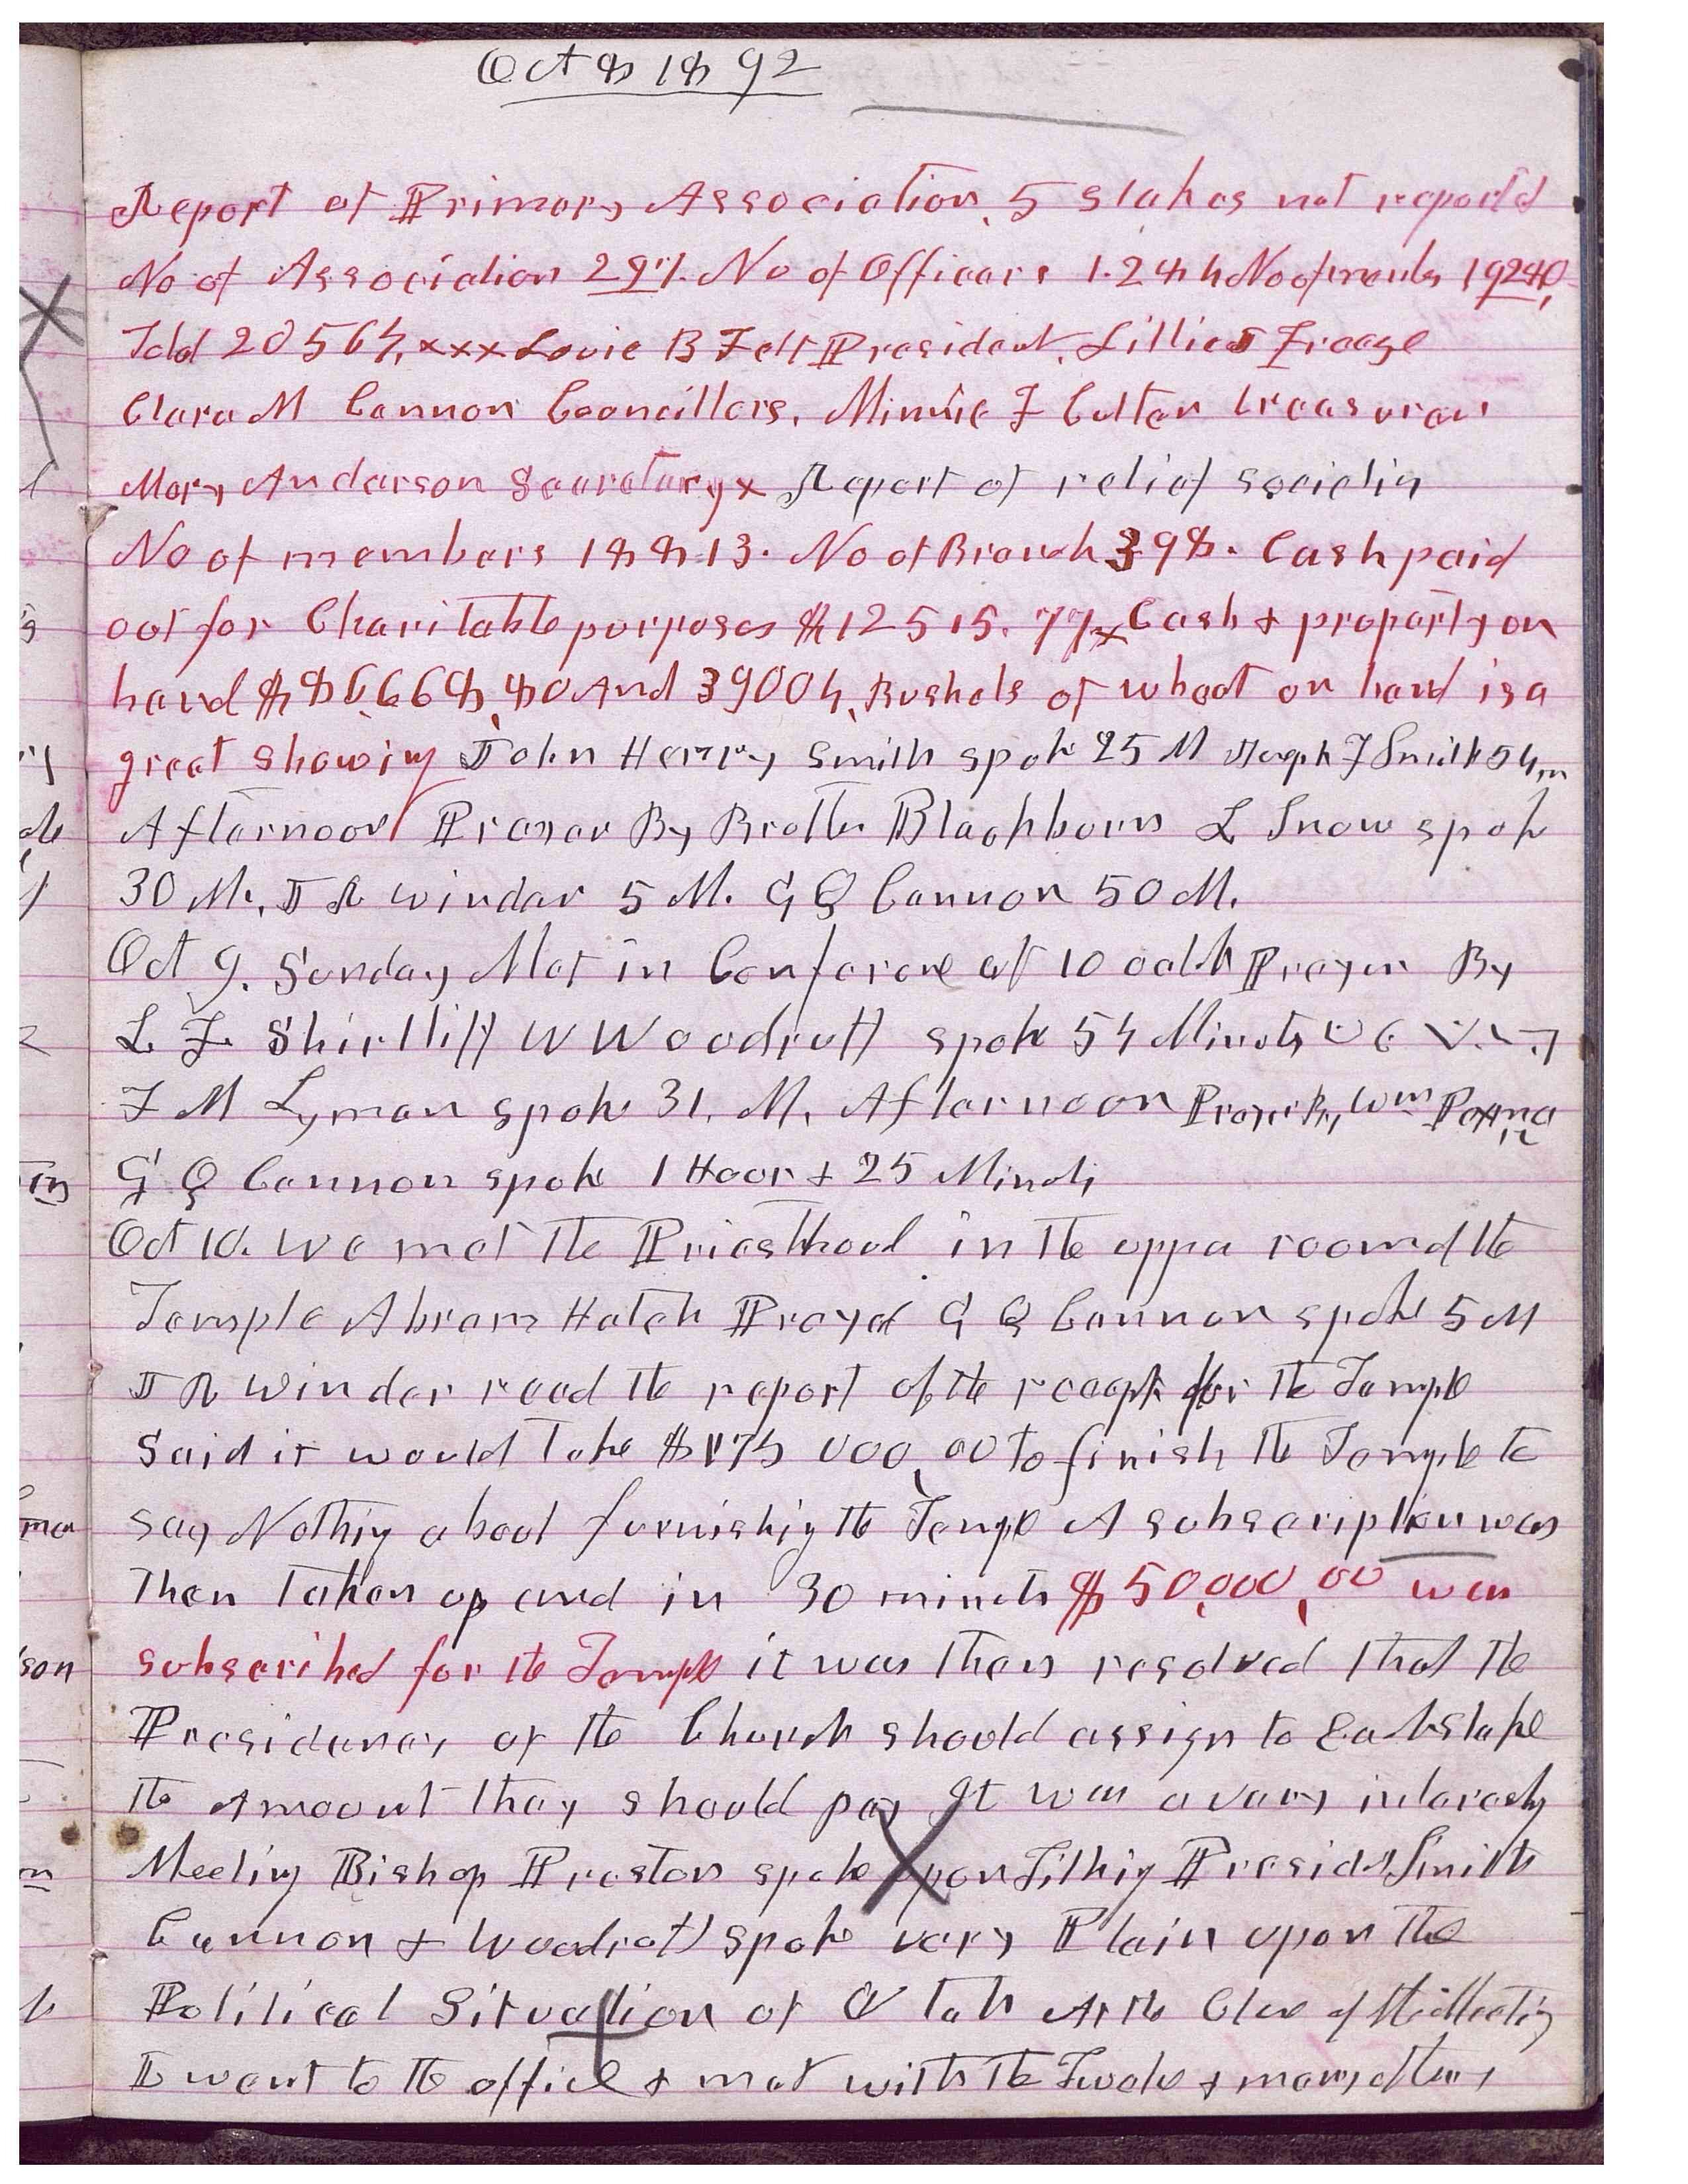 Oct 8 1892
Report of Primary Association, 5 Stakes not reportd
No of Association 297. No of Officers 1.284 No of memb 19280,
Total 20564, xxx Louie B Felt President, Lillie T Freeze
Clara M Cannon Councillors, Minnie F Cutler treasurer
Mary Anderson Secretary x Report of relief societies
No of members 18813. No of Branch 398. Cash paid
out for Charitable purposes $12515.77 x Cash & property on
hand $86,668,80 And 39004, Bushels of wheat on hand is a
great showing John Henry Smith spoke 25 M Joseph F Smith 54, m
Afternoon Prayer By Brother Blackburn L Snow spok
30 M., J R Winder 5 M. G Q Cannon 50 M.
Oct 9. Sunday Met in Conference at 10 oclk Prayer By
L. F. Shirtliff W Woodruff spoke 54 Minuts
F M Lyman spoke 31, M, Afternoon Prayer By Wm Paxman
G Q Cannon spoke 1 Hour & 25 Minuts
Oct 10. We met the Priesthood in the uppr room of the
Temple Abram Hatch Prayed G Q Cannon spoke 5 M
J R Winder read the report of the recept for the Temple
Said it would take $175 000,00 to finish the Temple to
say Nothing about furnishing the Temple A subscription was
then taken up and in 30 minuts $50,000,00 was
subscribed for the Temple it was then resolved that the
Presidency of the Church should assign to Each stake
the Amount they should pay It was a very interestig
Meeting Bishop Preston spoke upon Tithing Presidt Smith
Cannon & Woodruff spoke very Plain upon the
Political Situation of Utah At the Close of the Meeting
I went to the office & met with the Twelve & many others